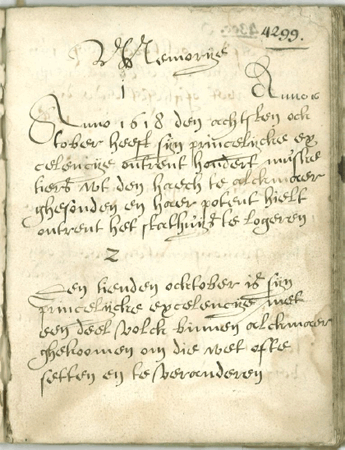 4299.
Memorye
1
Anno
Anno 1618 den achtsten ock
tober heeft sijn princelijcke ex
celencije ontrent hondert muskie
tiers wt den haech te alckmaer
ghesonden en haer potent hielt
ontrent het stathuijs te logeren
2
Den tienden ocktober is sijn
princelijcke excelencije met
een deel volck binnen alckmaer
ghekoomen om die wet ofte
setten en te veranderen